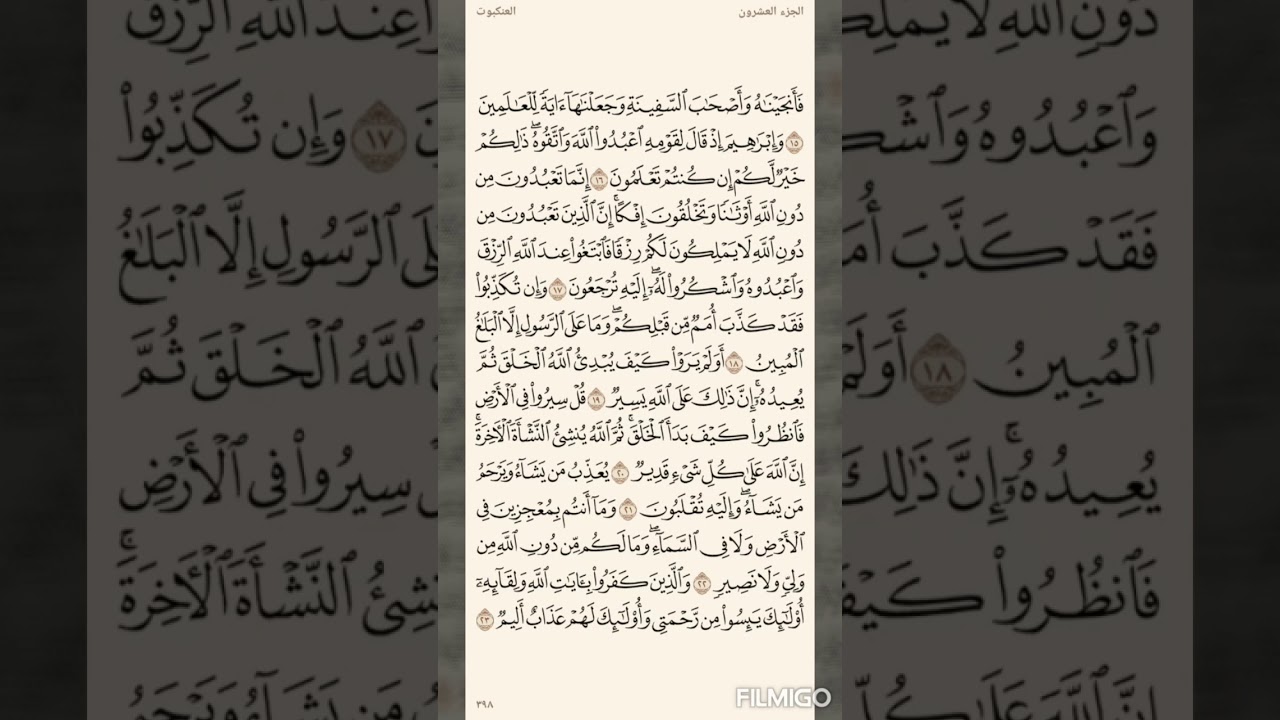 الجزء العشرون
العنكبوت
فَأَنجَيْنَٰهُ وَأَصْحَٰبَ ٱلسَّفِينَةِ وَجَعَلْنَٰهَآ ءَايَةً لِّلْعَٰلَمِينَ
١٥ وَإِبْرَٰهِيمَ إِذْ قَالَ لِقَوْمِهِ ٱعْبُدُوا۟ ٱللَّهَ وَٱتَّقُوهُ ۖ ذَٰلِكُمْ
خَيْرٌ لَّكُمْ إِن كُنتُمْ تَعْلَمُونَ ١٦ إِنَّمَا تَعْبُدُونَ مِن
دُونِ ٱللَّهِ أَوْثَٰنًا وَتَخْلُقُونَ إِفْكًا ۚ إِنَّ ٱلَّذِينَ تَعْبُدُونَ مِن
دُونِ ٱللَّهِ لَا يَمْلِكُونَ لَكُمْ رِزْقًا فَٱبْتَغُوا۟ عِندَ ٱللَّهِ ٱلرِّزْقَ
وَٱعْبُدُوهُ وَٱشْكُرُوا۟ لَهُۥٓ ۖ إِلَيْهِ تُرْجَعُونَ ١٧ وَإِن تُكَذِّبُوا۟
فَقَدْ كَذَّبَ أُمَمٌ مِّن قَبْلِكُمْ ۖ وَمَا عَلَى ٱلرَّسُولِ إِلَّا ٱلْبَلَٰغُ
ٱلْمُبِينُ ١٨ أَوَلَمْ يَرَوْا۟ كَيْفَ يُبْدِئُ ٱللَّهُ ٱلْخَلْقَ ثُمَّ
يُعِيدُهُۥٓ ۚ إِنَّ ذَٰلِكَ عَلَى ٱللَّهِ يَسِيرٌ ١٩ قُلْ سِيرُوا۟ فِى ٱلْأَرْضِ
فَٱنظُرُوا۟ كَيْفَ بَدَأَ ٱلْخَلْقَ ۚ ثُمَّ ٱللَّهُ يُنشِئُ ٱلنَّشْأَةَ ٱلْءَاخِرَةَ ۚ
إِنَّ ٱللَّهَ عَلَىٰ كُلِّ شَىْءٍ قَدِيرٌ ٢٠ يُعَذِّبُ مَن يَشَآءُ وَيَرْحَمُ
مَن يَشَآءُ ۖ وَإِلَيْهِ تُقْلَبُونَ ٢١ وَمَآ أَنتُم بِمُعْجِزِينَ فِى
ٱلْأَرْضِ وَلَا فِى ٱلسَّمَآءِ ۖ وَمَا لَكُم مِّن دُونِ ٱللَّهِ مِن
وَلِىٍّ وَلَا نَصِيرٍ ٢٢ وَٱلَّذِينَ كَفَرُوا۟ بِـَٔايَٰتِ ٱللَّهِ وَلِقَآئِهِۦٓ
أُو۟لَٰٓئِكَ يَئِسُوا۟ مِن رَّحْمَتِى وَأُو۟لَٰٓئِكَ لَهُمْ عَذَابٌ أَلِيمٌ ٢٣
٣٩٨
FILMIGO